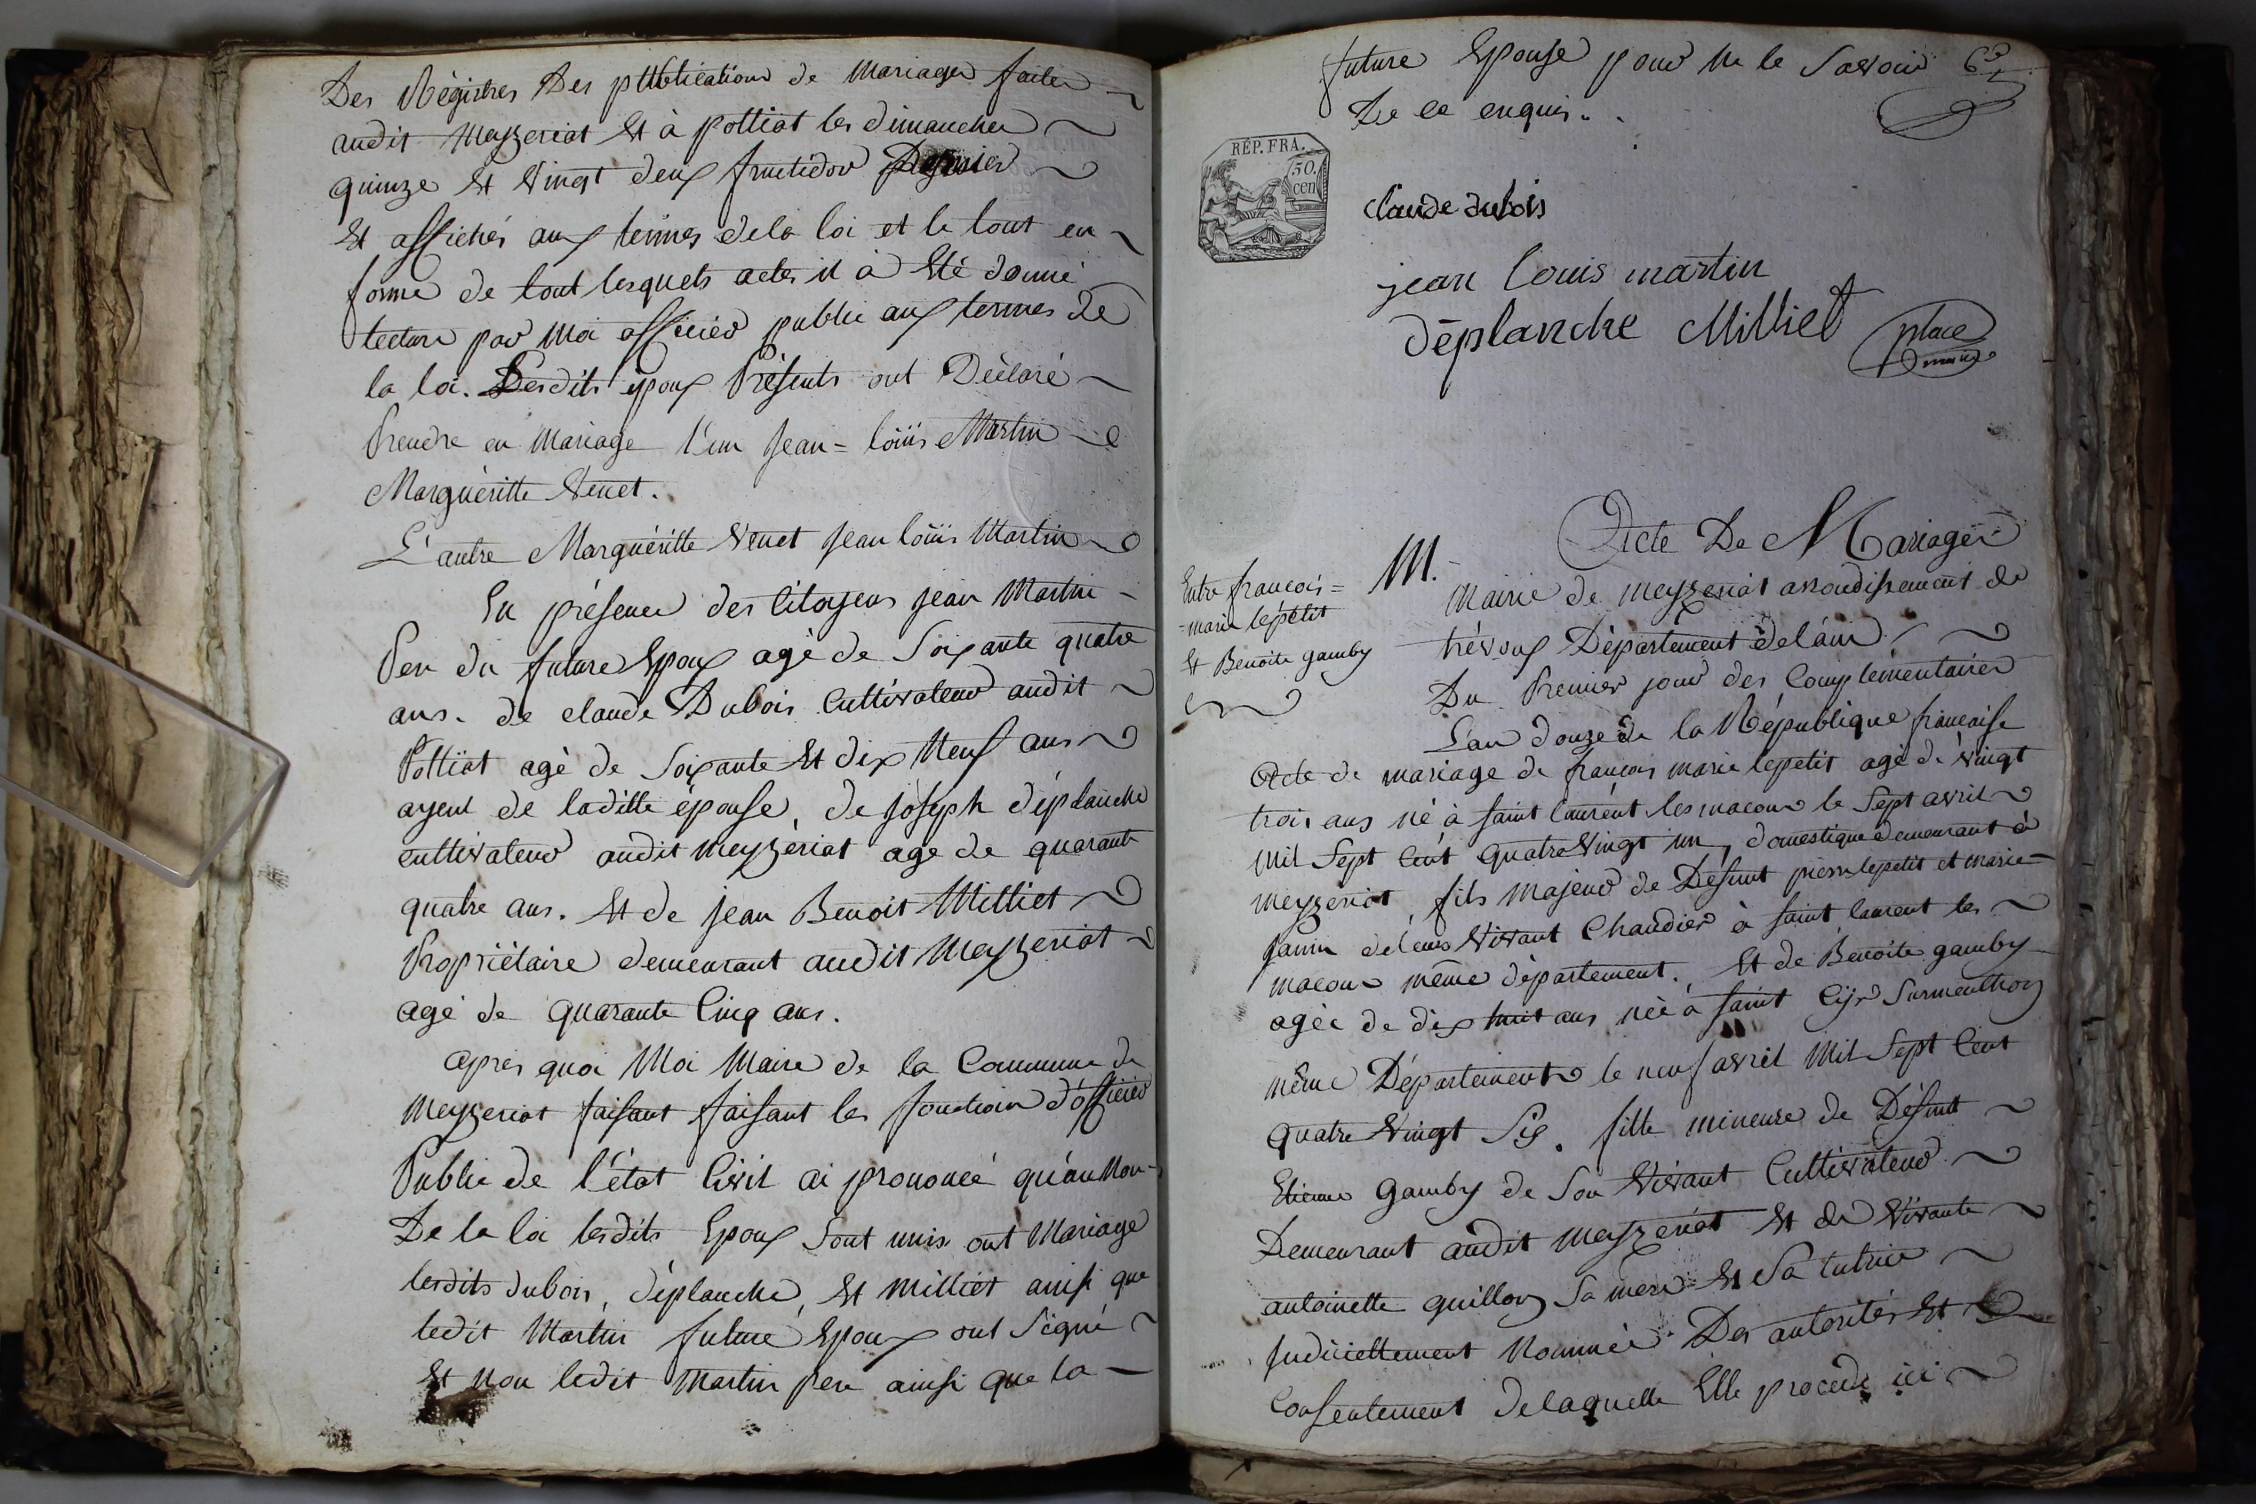 Des Régistres Des publications de Mariages faites
audit Meyzeriat Et à polliat les dimanches
quinze Et Vingt deux fructidor Dernier
Et affichés aux termes dela loi et le tout en
forme de tout lesquels actes il à Eté donné
lecture par Moi officier public aux termes de
la loi. Lesdits époux Présents ont Déclaré
Prendre en Mariage l'un Jean = loüis Martin
Marguéritte Venet.
L'autre Marguéritte Venet Jean loüis Martin
En présence des Citoyens jean Martin
Pere du future Epoux agé de Soixante quatre
ans. de claude Dubois Cultivateur audit
Polliat agé de Soixante Et dix Neuf ans
ayeul de laditte épouse, de joseph déplanche
cultivateur audit Meyzériat agé de quarante
quatre ans. Et de jean Benoit Milliet
Propriétaire demeurant audit Meyzeriat
agé de quarante Cinq ans.
après quoi Moi Maire de la Commune de
Meyzeriat faisant faisant les fonctions d'officier
Public de l'état Civil ai prononcé qu'au Nom
De la loi lesdits Epoux Sont unis ont Mariage
lesdits dubois, déplanche, Et Milliet ainsi que
ledit Martin future Epoux ont Signé
Et non ledit Martin pere ainsi que la
future Epouse pour Ne le Savoir
De ce enquis.
63
RÉP. FRA.
50.
cen
claude dubois
jean louis martin
déplanche Milliet
place
maire
Acte De Mariage
M.
Entre francois =
= marie lepetit
Et Benoite gamby
Mairie de Meyzeriat arrondissement de
trévoux Département delain
Du Premier jour des Complémentaires
L'an douze de la République francaise
Acte de mariage de françois marie lepetit agé de Vingt
trois ans né à saint laurent les macon le Sept avril
Mil Sept Cent quatre Vingt un, domestique demeurant à
Meyzeriat, fils Majeur de Défunt pierre lepetit et marie
janin deleur Vivant Chandier à saint laurent les
macon même département. Et de Benoite gamby
agée de dix huit ans née à saint Cijr Surmenthon
même Département le neuf avril Mil Sept Cent
quatre Vingt Six. fille mineure de Défunt
Etienne gamby de Son Vivant Cultivateur
Demeurant audit Meyzeriat Et de Vivante
antoinette guillon Sa mere Et Sa tutrice
judiciellement Nommée Des autorités Et
Consentement delaquelle Elle procede ici